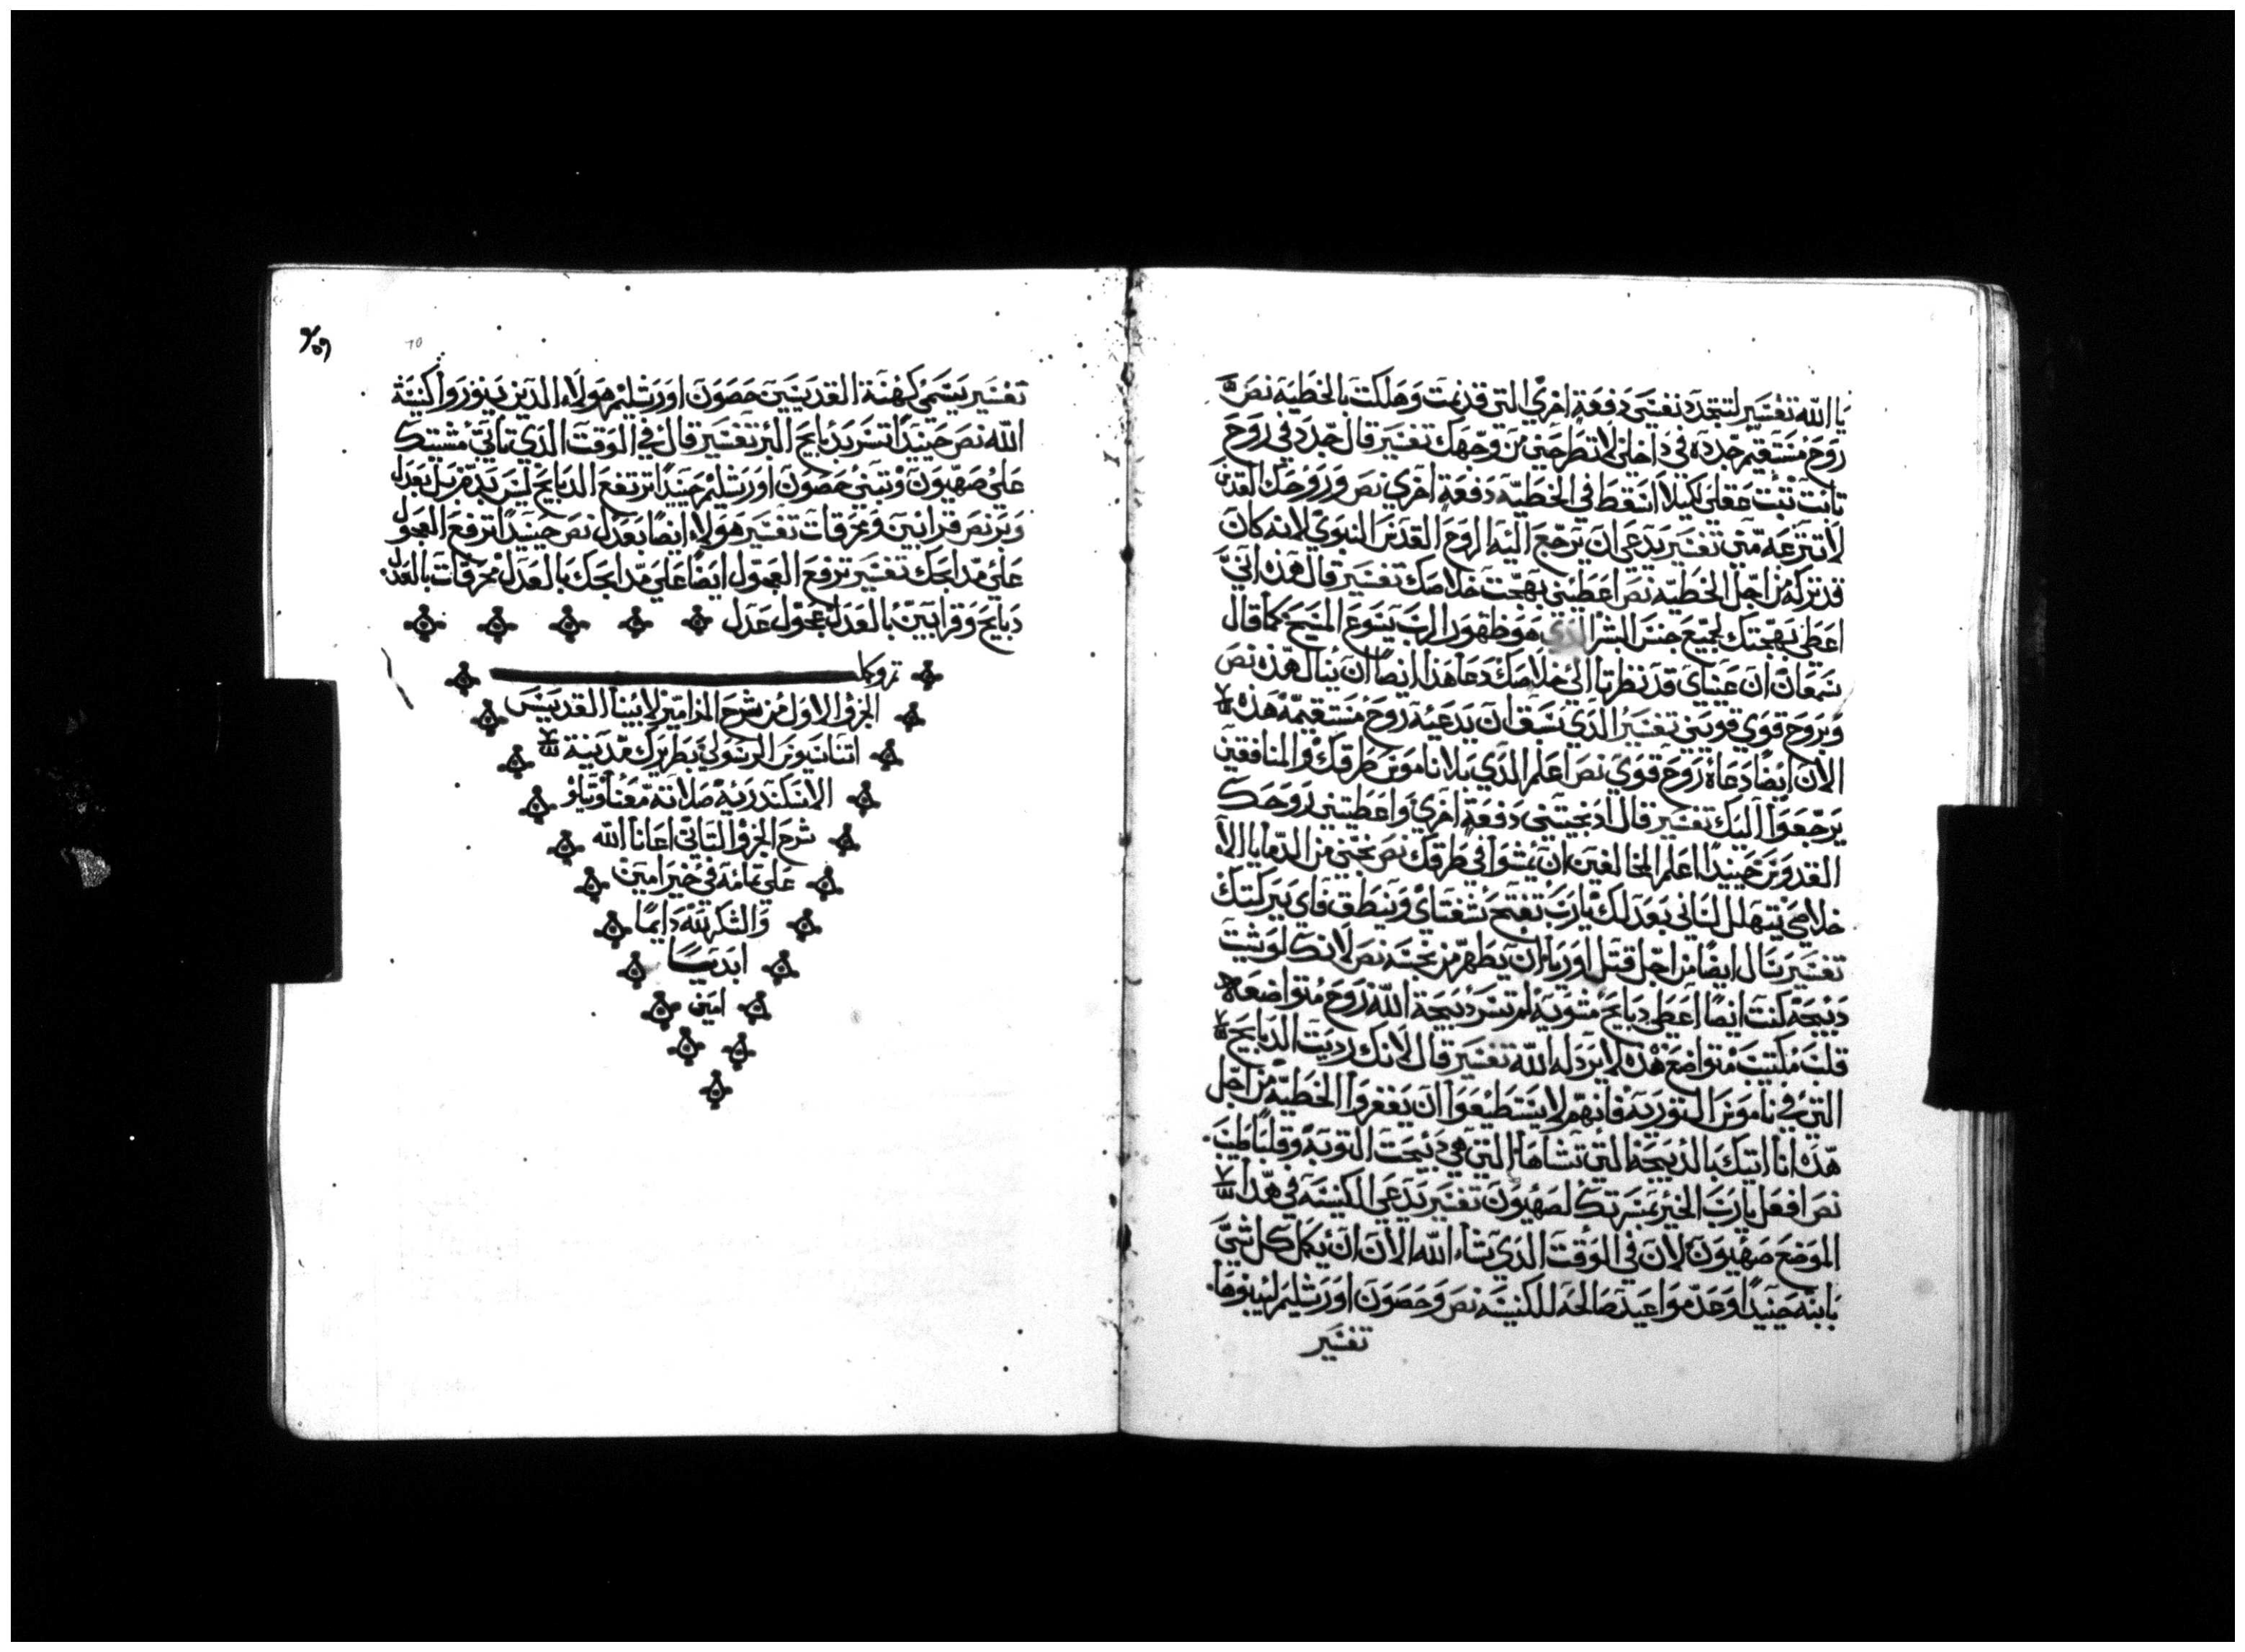 يا الله تفسير لتتجدد نفسي دفعة اخري التي قدمت وهلكت بالخطيه نص
روح مستقيم جدده في داخلي لا تطرحني من وجهك تفسير قال جدد في روح
تانت تثبت عقلي لكيلا اسقط في الخطيه دفعة اخري نص وروحك القدس
لا تنزعه مني تفسير يدعي ان يرجع اليه الروح القدس النبوي لانه كان
قد تركه من اجل الخطيه نص اعطيني بهجت خلاصك تفسير قال هذه انيْ
اعطي بهجتك لجميع جنس البشر الذي هو ظهور الرب يسوع المسيح كما قال
سمعان ان عيناي قد نظرتا الي خلاصك دعا هذا ايضا ان ينال هذه نص
وبروح قوي قويني تفسير الذي سبق ان يدعيه روح مستقيمه هذه
الان ايضا دعاه روح قوي نص اعلم الذي بلا ناموس طرقك والمنافقين
يرجعوا اليك تفسير قال اذ نجيتني دفعة اخري واعطيتني روحك
القدوس حينيدا اعلم المخالفين ان يمشوا في طرقك نص نجني من الدما يا الاه
خلاصي يتهلل لساني بعدلك يارب تفتح شفتاي وينطق فاي ببركتك
تفسير سال ايضا من اجل قتل اوريا ان يطهر من نجسه نص لانك لو شيت
دبيحه كنت ايضا اعطي دبايح مشويه لم تسر دبيحة الله روح متواضعه
قلب متواضع هذه لا يردله الله تفسير قال لانك رديت الدبايح
التي في ناموس التوريه فانهم لا يستطيعوا ان يغفروا الخطيه من اجل
هدا انا اتيك بالدبيحه التي تشاها التي هي دبيحت التوبه وقلبا طيبا
نص افعل يارب الخير بمسرتك لصهيون تفسير يدعي الكنيسه في هدا
الموضع صهيون لان في الوقت الدي شاء الله الان ان يكمل كل شي
بابنه حينيدا وعد مواعيد صالحه للكنيسه نص وحصون اورشليم ليبنوها
تفسير
تفسير يسمي كهنة القديسين حصون اورشليم هولاء الدين ينوروا كنيسة
الله نص حينيدا تسر بدبايح البر تفسير قال في الوقت الدي تاتي مسرتك
علي صهيون وتبني حصون اورشليم حينيدا ترتفع الدبايح ليس بدم بل بعدل
وبر نص قرابين ومحرقات تفسير هولاء ايضا بعدل نص حينيدا ترفع العجول
علي مدابحك تفسير ترفع العجول ايضا علي مدابحك بالعدل محرقات بالعدل
دبايح وقرابين بالعدل عجول عدل
الجزو الاول من شرح المزامير لابينا القديس
اتناسيوس الرسولي بطريرك مدينة
الاسكندريه صلاته معنا وتلو
شرح الجزو التاني اعانا الله
علي تمامه في خير امين
والشكر لله دايما
ابديا
امين